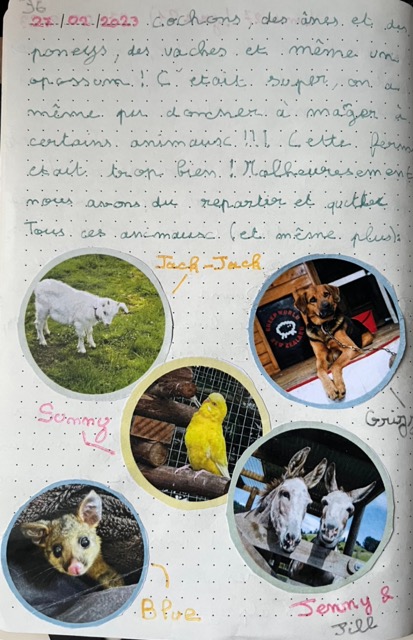 36
27/02/2023 cochons, des ânes et des
poneys, des vaches et même un
opossum! C'était super, on a
même pu donner à manger à
certains animaux!!! Cette ferme
était trop bien! Malheuresement
nous avons du repartir et quitter
Tous ces animaux (et même plus):
Jack-Jack
Sunny
Blue
Jenny &
Jill